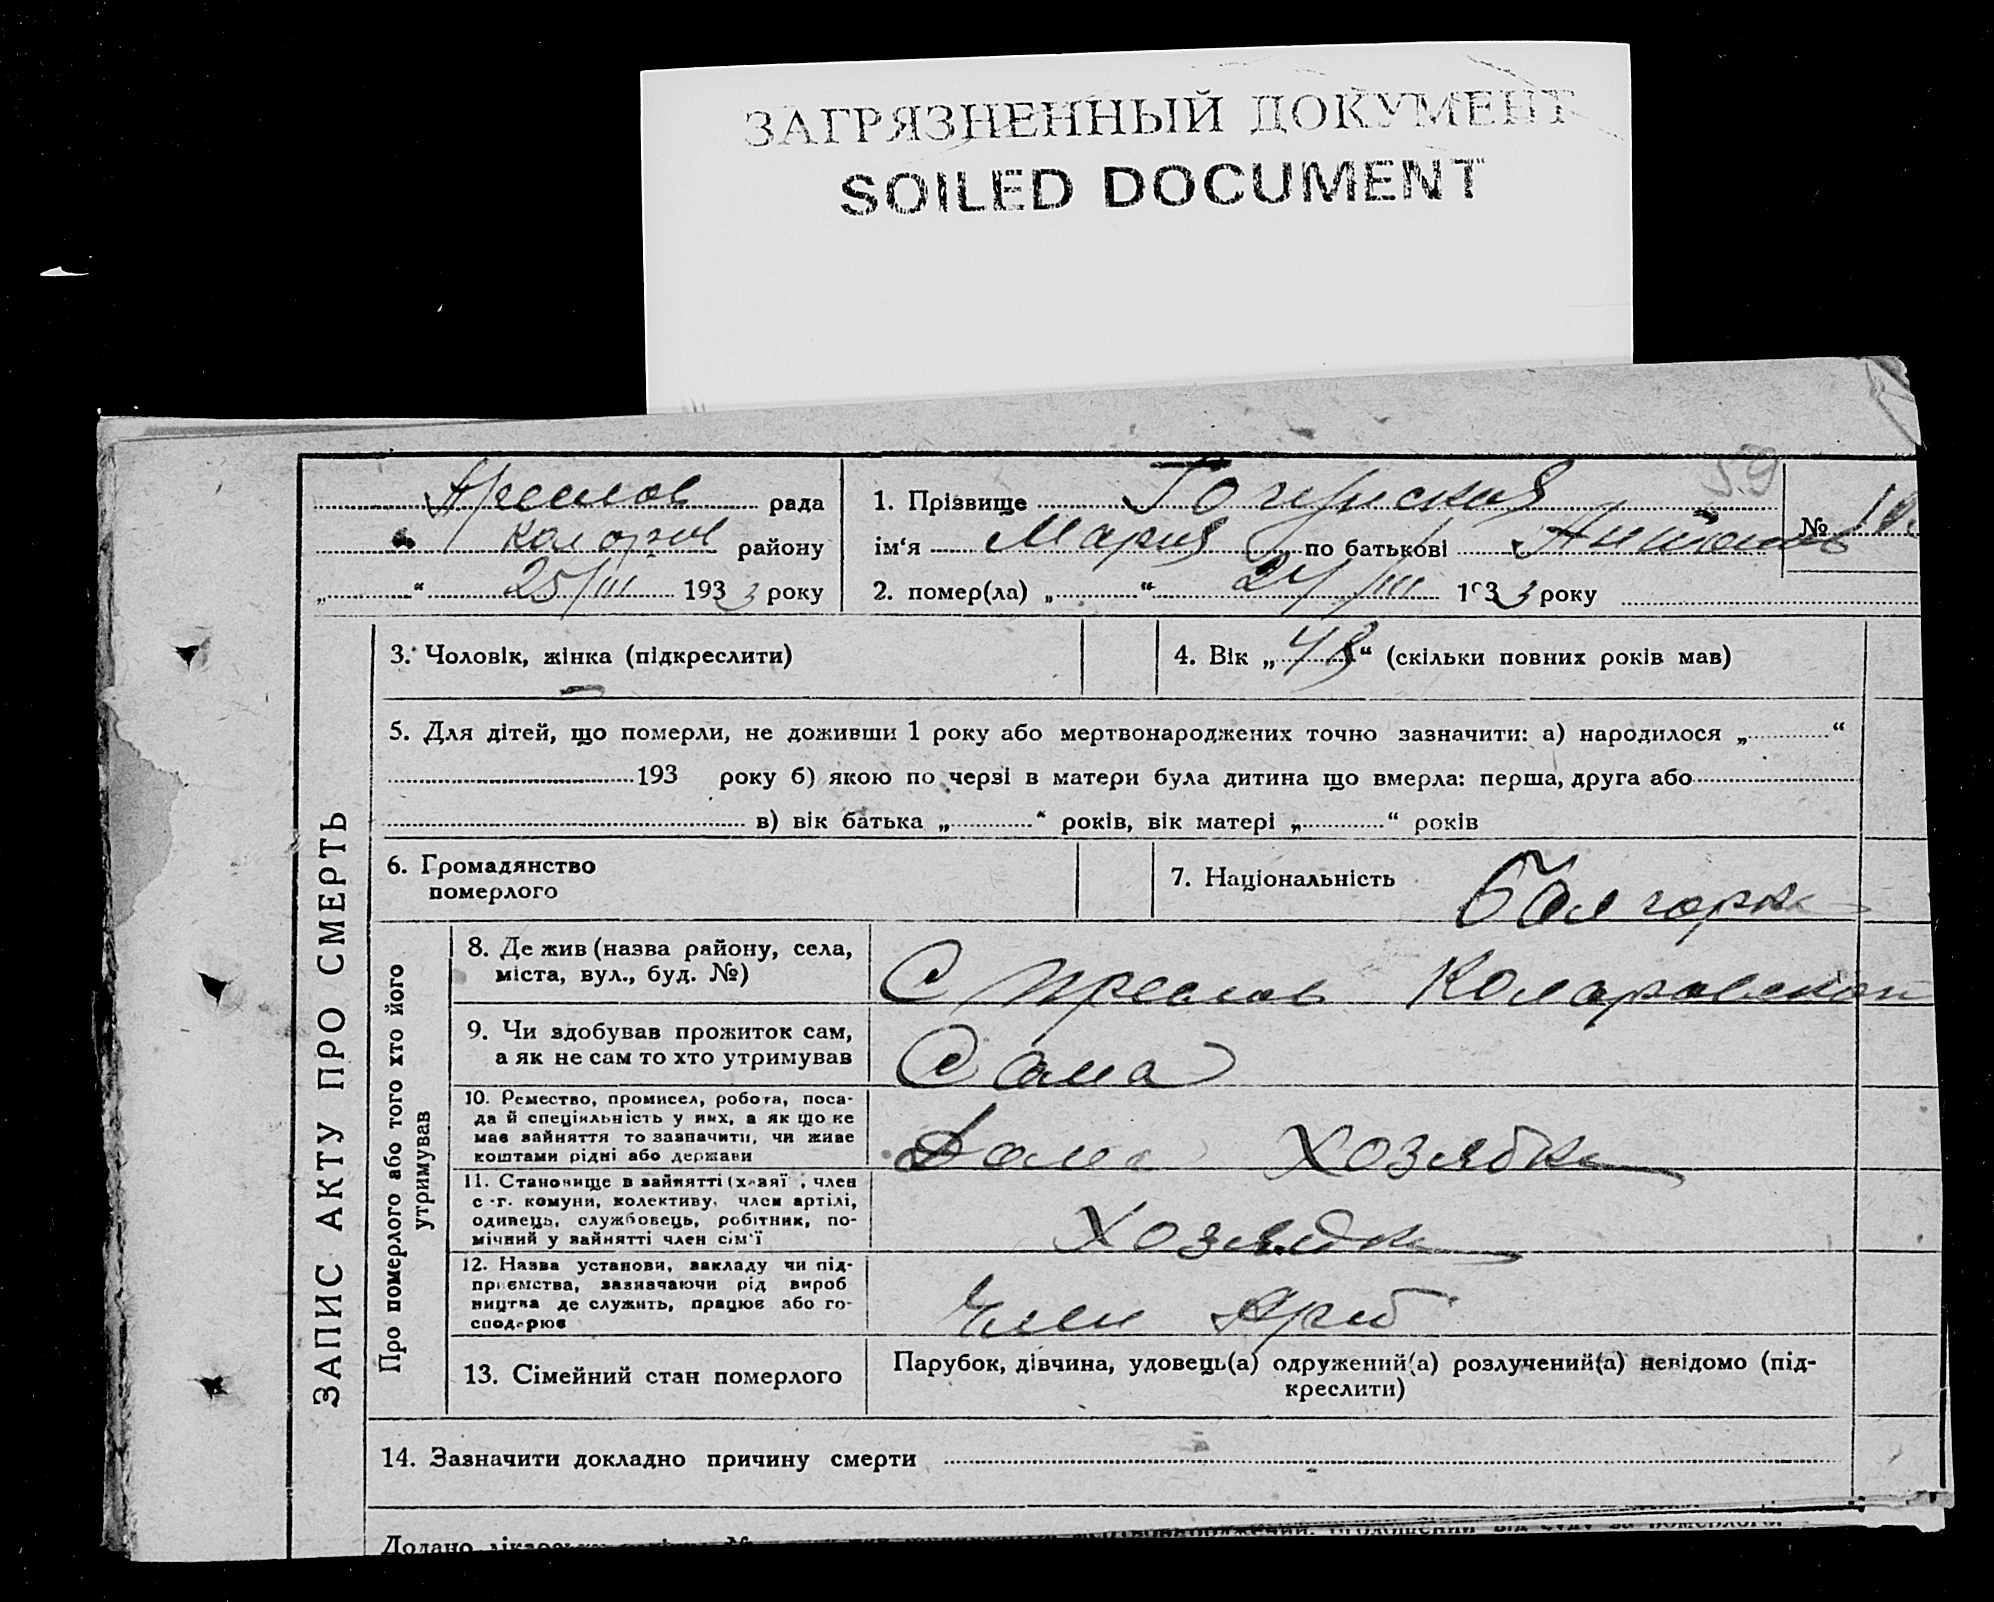 ЗАГРЯЗНЕННЫЙ ДОКУМЕНТ
SOILED DOCUMENT
59
Преслов рада
Коларов району
„ “ 25/III 1933 року
1. Прізвище
ім‘я Мария по батькові
2. помер(ла) „ “ 24/III 1933 року
№
ЗАПИС АКТУ ПРО СМЕРТЬ
3. Чоловік, жінка (підкреслити)
4. Вік „48“ (скільки повних років мав)
5. Для дітей, що померли, не доживши 1 року або мертвонароджених точно зазначити: а) народилося „ “
193 року б) якою по черзі в матери була дитина що вмерла: перша, друга або
в) вік батька „ “ років, вік матері „ “ років
6. Громадянство
померлого
7. Національність Болгарк
Про померлого або того хто його
утримував
8. Де жив (назва району, села,
міста, вул., буд. №)
С Преслов Коларовской
9. Чи здобував прожиток сам,
а як не сам то хто утримував
Сама
10. Ремество, промисел, робота, поса-
да й спеціяльність у них, а як що не
має зайняття то зазначити, чи живе
коштами рідні або держави
Дома Хозяйка
11. Становище в зайнятті (х зяї , член
с -г. комуни, колективу, член артілі,
одинець, службовець, робітник, по-
мічний у зайнятті член сім'ї
Хозяйка
12. Назва установи, закладу чи під-
приємства, зазначаючи рід вироб
ництва де служить, працює або го-
сподарює
Член Арт
13. Сімейний стан померлого
Парубок, дівчина, удовець(а) одружений(а) розлучений(а) невідомо (під-
креслити)
14. Зазначити докладно причину смерти
Додано